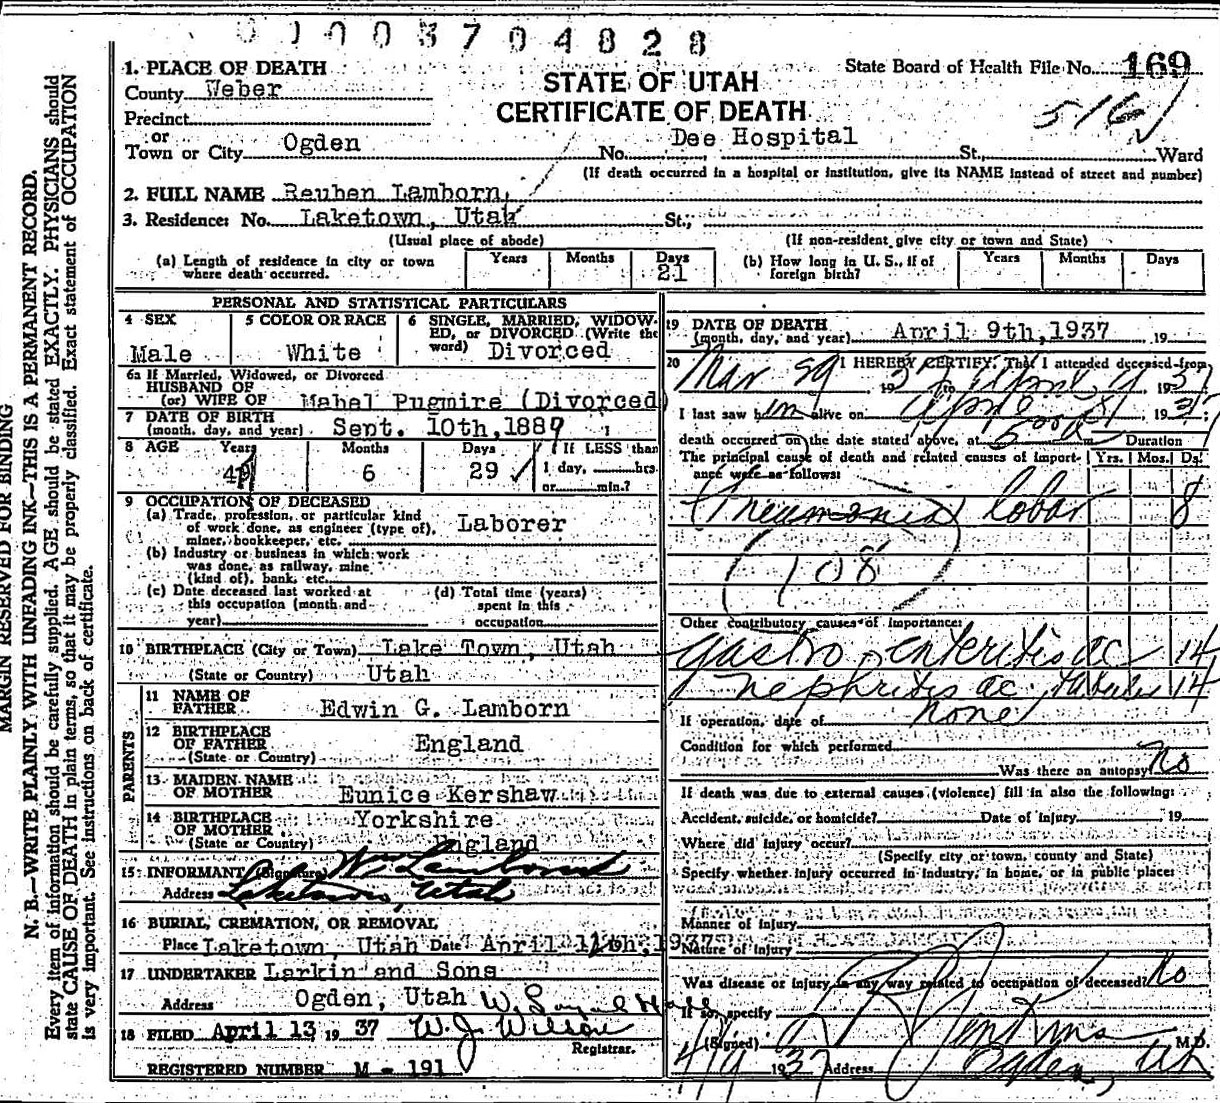 0 1 0 0 3 7 0 4 8 2 8
MARGIN RESERVED FOR BINDING
N. B.—WRITE PLAINLY WITH UNFADING INK—THIS IS A PERMANENT RECORD.
Every item of information should be carefully supplied. AGE should be stated EXACTLY. PHYSICIANS should
state CAUSE OF DEATH in plain terms, so that it may be properly classified. Exact statement of OCCUPATION
is very important. See instructions on back of certificate.
State Board of Health File No. 169
STATE OF UTAH
CERTIFICATE OF DEATH
516
1. PLACE OF DEATH
County Weber
Precinct
or
Town or City Ogden No. Dee Hospital St., Ward
(If death occurred in a hospital or institution, give its NAME instead of street and number)
2. FULL NAME Reuben Lamborn,
3. Residence: No. Laketown, Utah St.,
(Usual place of abode) (If non-resident give city or town and State)
(a) Length of residence in city or town where death occurred. Years Months Days 21
(b) How long in U. S., if of foreign birth? Years Months Days
PERSONAL AND STATISTICAL PARTICULARS
4 SEX Male
5 COLOR OR RACE White
6 SINGLE, MARRIED, WIDOWED, or DIVORCED (Write the word) Divorced
6a If Married, Widowed, or Divorced
HUSBAND OF
(or) WIFE OF Mabel Pugmire (Divorced)
7 DATE OF BIRTH
(month, day, and year) Sept. 10th, 1889
8 AGE Years Months 6 Days 29 If LESS than
1 day, hrs.
or min.?
9 OCCUPATION OF DECEASED
(a) Trade, profession, or particular kind
of work done, as engineer (type of),
miner, bookkeeper, etc. Laborer
(b) Industry or business in which work
was done, as railway, mine
(kind of), bank, etc.
(c) Date deceased last worked at
this occupation (month and
year)
(d) Total time (years)
spent in this
occupation
10 BIRTHPLACE (City or Town) Lake Town, Utah
(State or Country) Utah
PARENTS
11 NAME OF
FATHER Edwin G. Lamborn
12 BIRTHPLACE
OF FATHER England
(State or Country)
13 MAIDEN NAME
OF MOTHER Eunice Kershaw
14 BIRTHPLACE
OF MOTHER Yorkshire
(State or Country) England
15 INFORMANT (Signature) Wm Lamborn
Address Laketown, Utah
16 BURIAL, CREMATION, OR REMOVAL
Place Laketown, Utah Date April 12th, 1937
17 UNDERTAKER Larkin and Sons
Address Ogden, Utah
18 FILED April 13, 1937 W. J. Wilson
Registrar.
REGISTERED NUMBER M - 191
19 DATE OF DEATH
(month, day, and year) April 9th, 1937 19
20 I HEREBY CERTIFY, That I attended deceased from
Mar 29 1937 to April 9 1937
I last saw him alive on April 1937
death occurred on the date stated above, at m. Duration
The principal cause of death and related causes of import- Yrs. Mos. Ds.
ance were as follows:
Pneumonia lobar 8
(108)
Other contributory causes of importance:
Gastro enteritis ac 14
nephritis ac 14
If operation, date of none
Condition for which performed
Was there an autopsy No
If death was due to external causes (violence) fill in also the following:
Accident, suicide, or homicide? Date of injury 19
Where did injury occur?
(Specify city or town, county and State)
Specify whether injury occurred in industry, in home, or in public place:
Manner of injury
Nature of injury
Was disease or injury in any way related to occupation of deceased? No
If so, specify
(Signed) Jenkins M.D.
1937 Address Ogden, Ut